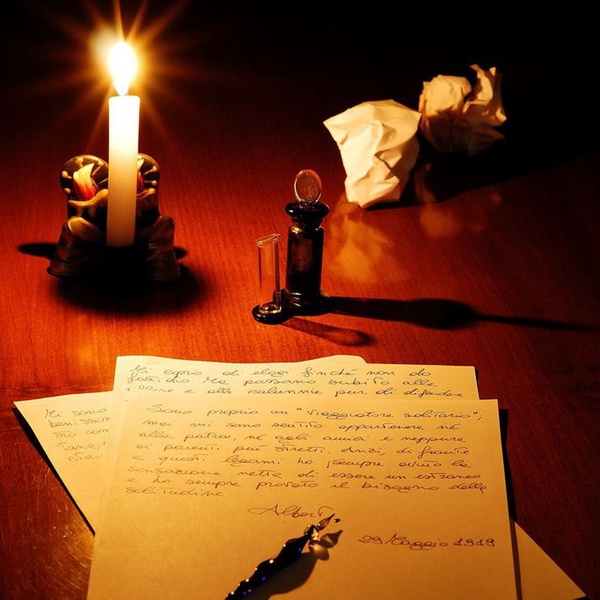 Mi copro di elogi finché non do
fastidio ma passano subito alle
e alle calunnie pur di difendere
Sono proprio un "Viaggiatore solitario",
mai mi sono sentito appartenere né
alla patria, né agli amici e neppure
ai parenti più stretti. Anzi, di fronte
a questi legami ho sempre avuto la
sensazione netta di essere un estraneo
e ho sempre provato il bisogno della
solitudine
Albert
29 Maggio 1919
Mi sono